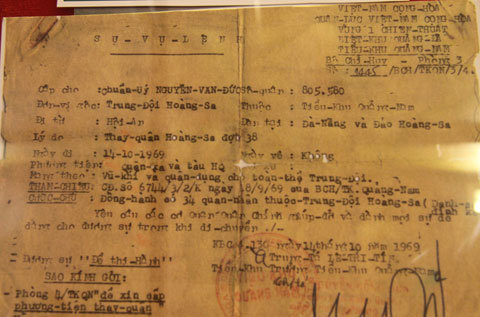 VIỆT-NAM CỘNG-HÒA
QUÂN-LỰC VIỆT-NAM CỘNG HÒA
VÙNG I CHIẾN-THUẬT
KHU QUẢNG-ĐÀ
TIỂU-KHU QUẢNG-NAM
Bộ Chỉ-Huy - Phòng 3
Số : 1445 /BCH/TKQN/3/4.
SỰ-VỤ-LỆNH
Cấp cho : chuẩn-Uý NGUYỄN-VĂN-ĐỨC quân : 805.580
Đơn-vị gốc : Trung-Đội Hoàng-Sa Thuộc : Tiểu-Khu Quảng-Nam
Đi từ : Hội-An Đến tại : Đà-Nẵng và Đảo Hoàng-Sa
Lý do : Thay-quân Hoàng-Sa đợt 38
Ngày đi : 14-10-1969 Ngày về : Không
Phương tiện: Quân-xa và tàu HQ
Mang theo : Vũ-khí và quân-dụng cho toàn-thể Trung-Đội.
THAM-CHIẾU: CĐ.số 6744/3/2/K ngày 18/9/69 của BCH/TK.Quảng-Nam
CƯỚC-CHÚ : Đồng-hành có 34 quân-nhân thuộc-Trung-Đội Hoàng-Sa( Danh-sách
đính
Yêu cầu các cơ Quân Quân Chính giúp-đỡ và dành mọi sự dễ
dàng cho đương-sự trong khi di-chuyển ./-
KBC 4.139 ngày 14 tháng 10 năm 1969
Trung-Tá LÊ-TRÍ-TÍN
Tiểu-Khu Trưởng Tiểu-Khu Quảng-Nam
- Đương-sự "Để thi-Hành"
SAO KÍNH GỬI:
- Phòng 4/TKQN"để xin cấp
phương-tiện thay-quân